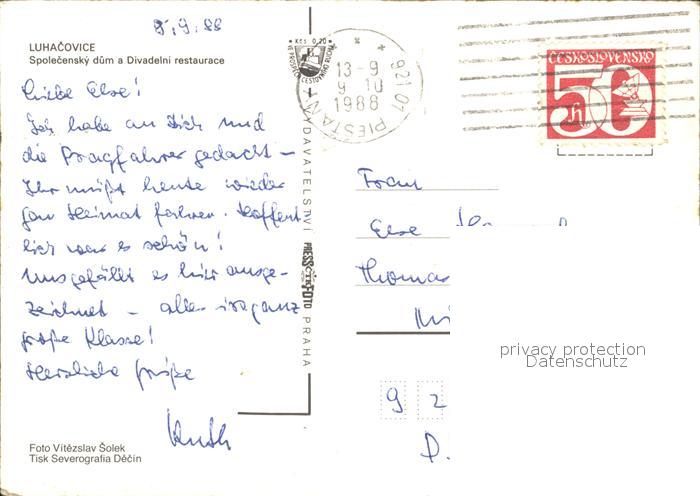 9.9.88
LUHAČOVICE
Společenský dům a Divadelní restaurace
Liebe Else!
Ich habe an Dich und
die Pragfahrer gedacht –
Ihr müßt heute wieder
gen Heimat fahren. Hoffent
lich war es schön!
Uns gefällt es hier ausge-
zeichnet – alles ist ganz
große Klasse!
Herzliche Grüße
Ruth
Foto Vítězslav Šolek
Tisk Severografia Děčín
VYDAVATELSTVÍ PRESSFOTO PRAHA
Kčs 0,20
VE PROSPĚCH CESTOVNÍHO RUCHU
921 01 PIEŠŤANY
13-9
9 10
1988
ČESKOSLOVENSKO
50 h
Frau
Else
Thomas
privacy protection
Datenschutz
9 2
D.